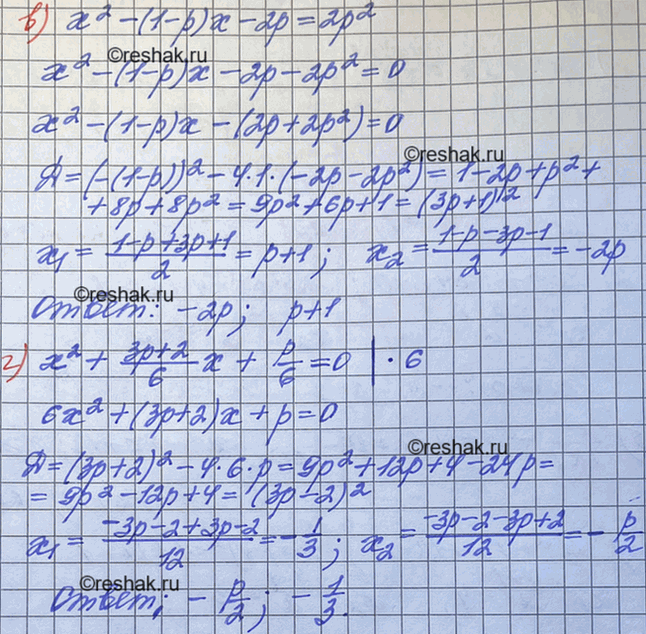 в) x² - (1-p)x - 2p = 2p²
©reshak.ru
x² - (1-p)x - 2p - 2p² = 0
x² - (1-p)x - (2p + 2p²) = 0
©reshak.ru
Д = (-(1-p))² - 4·1·(-2p - 2p²) = 1 - 2p + p² +
+ 8p + 8p² = 9p² + 6p + 1 = (3p+1)²
x₁ = (1-p+3p+1)/2 = p+1; x₂ = (1-p-3p-1)/2 = -2p
©reshak.ru
Ответ: -2p; p+1
г) x² + (3p+2)/6 x + p/6 = 0 | · 6
6x² + (3p+2)x + p = 0
©reshak.ru
Д = (3p+2)² - 4·6·p = 9p² + 12p + 4 - 24p =
= 9p² - 12p + 4 = (3p-2)²
x₁ = (-3p-2+3p-2)/12 = -1/3; x₂ = (-3p-2-3p+2)/12 = -p/2
©reshak.ru
Ответ: -p/2; -1/3.